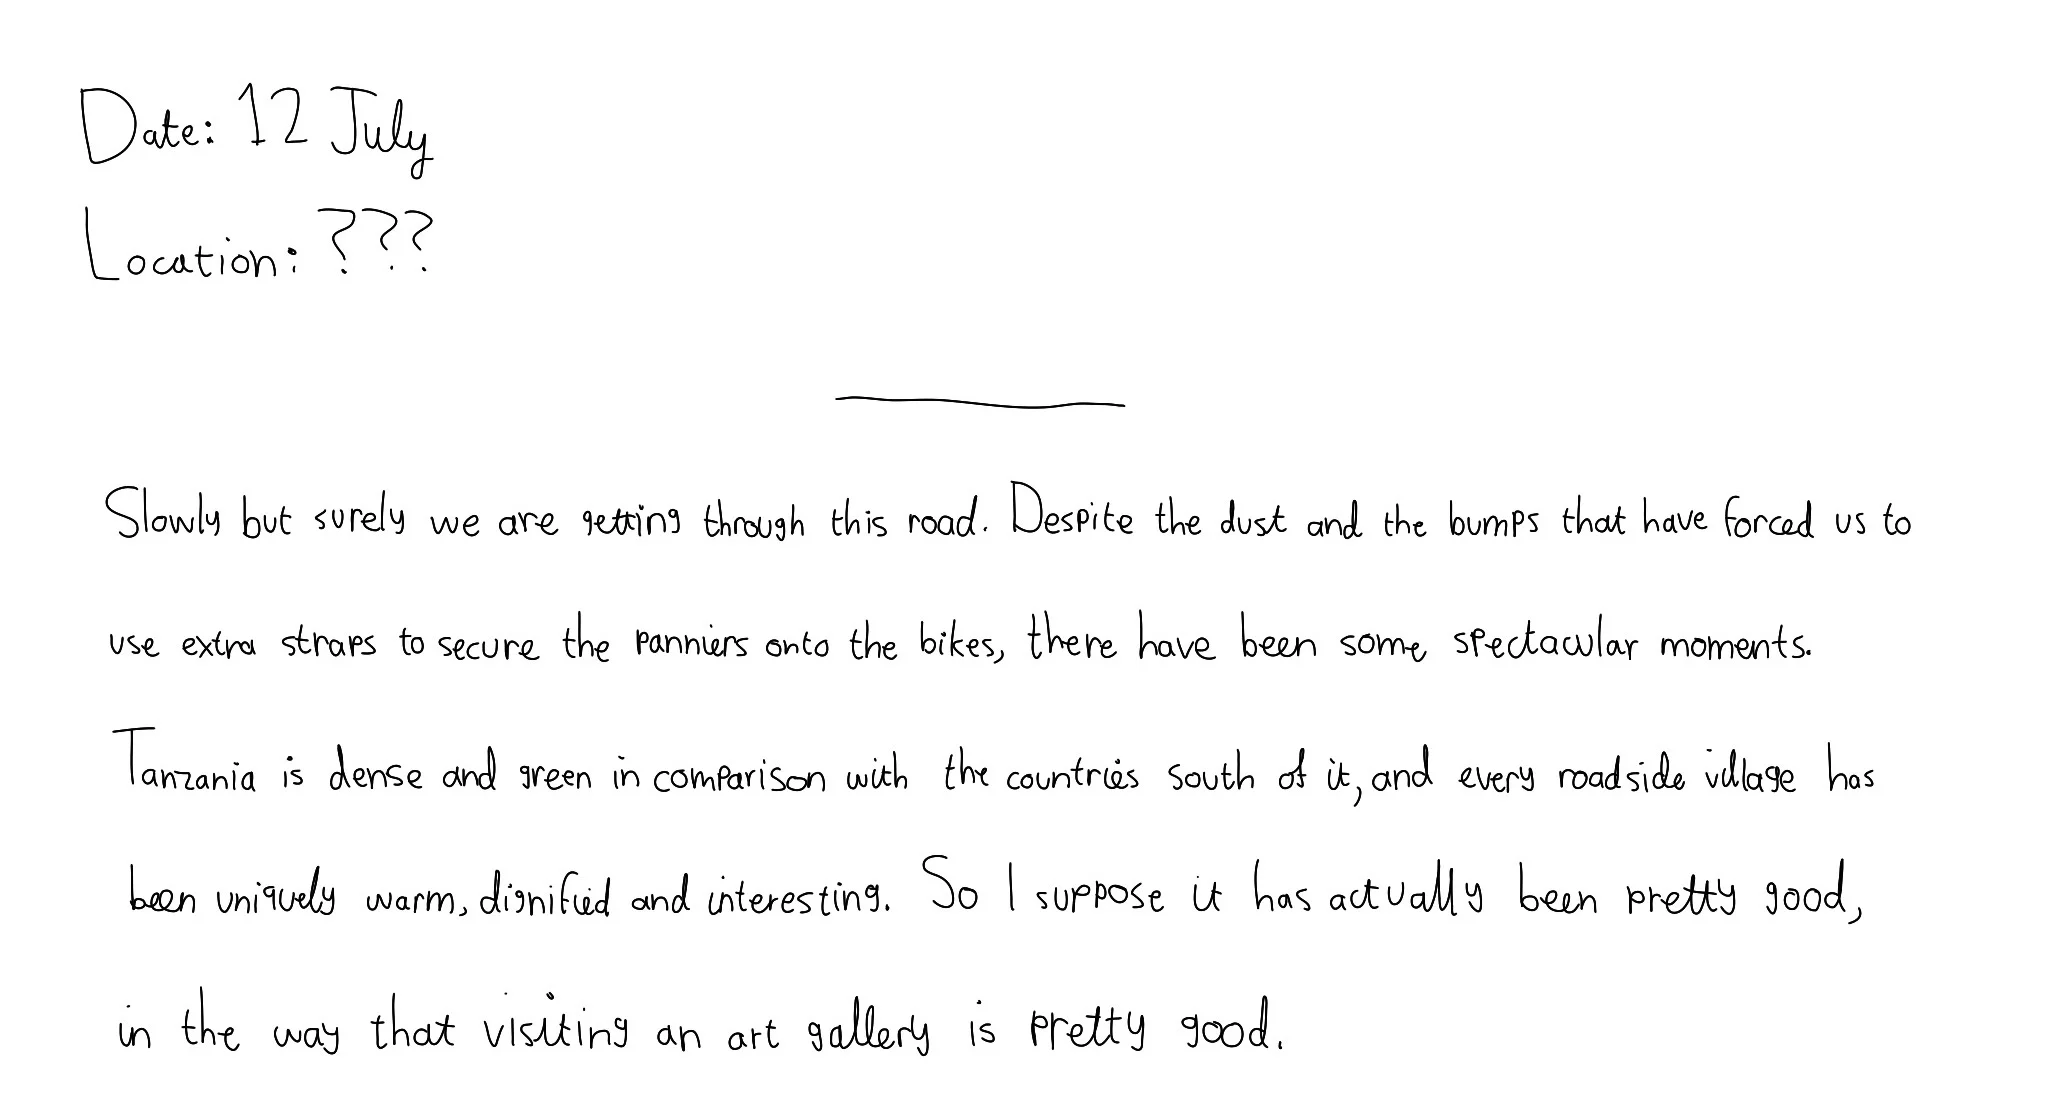 Date: 12 July
Location: ???
Slowly but surely we are getting through this road. Despite the dust and the bumps that have forced us to
use extra straps to secure the panniers onto the bikes, there have been some spectacular moments.
Tanzania is dense and green in comparison with the countries south of it, and every roadside village has
been uniquely warm, dignified and interesting. So I suppose it has actually been pretty good,
in the way that visiting an art gallery is pretty good.